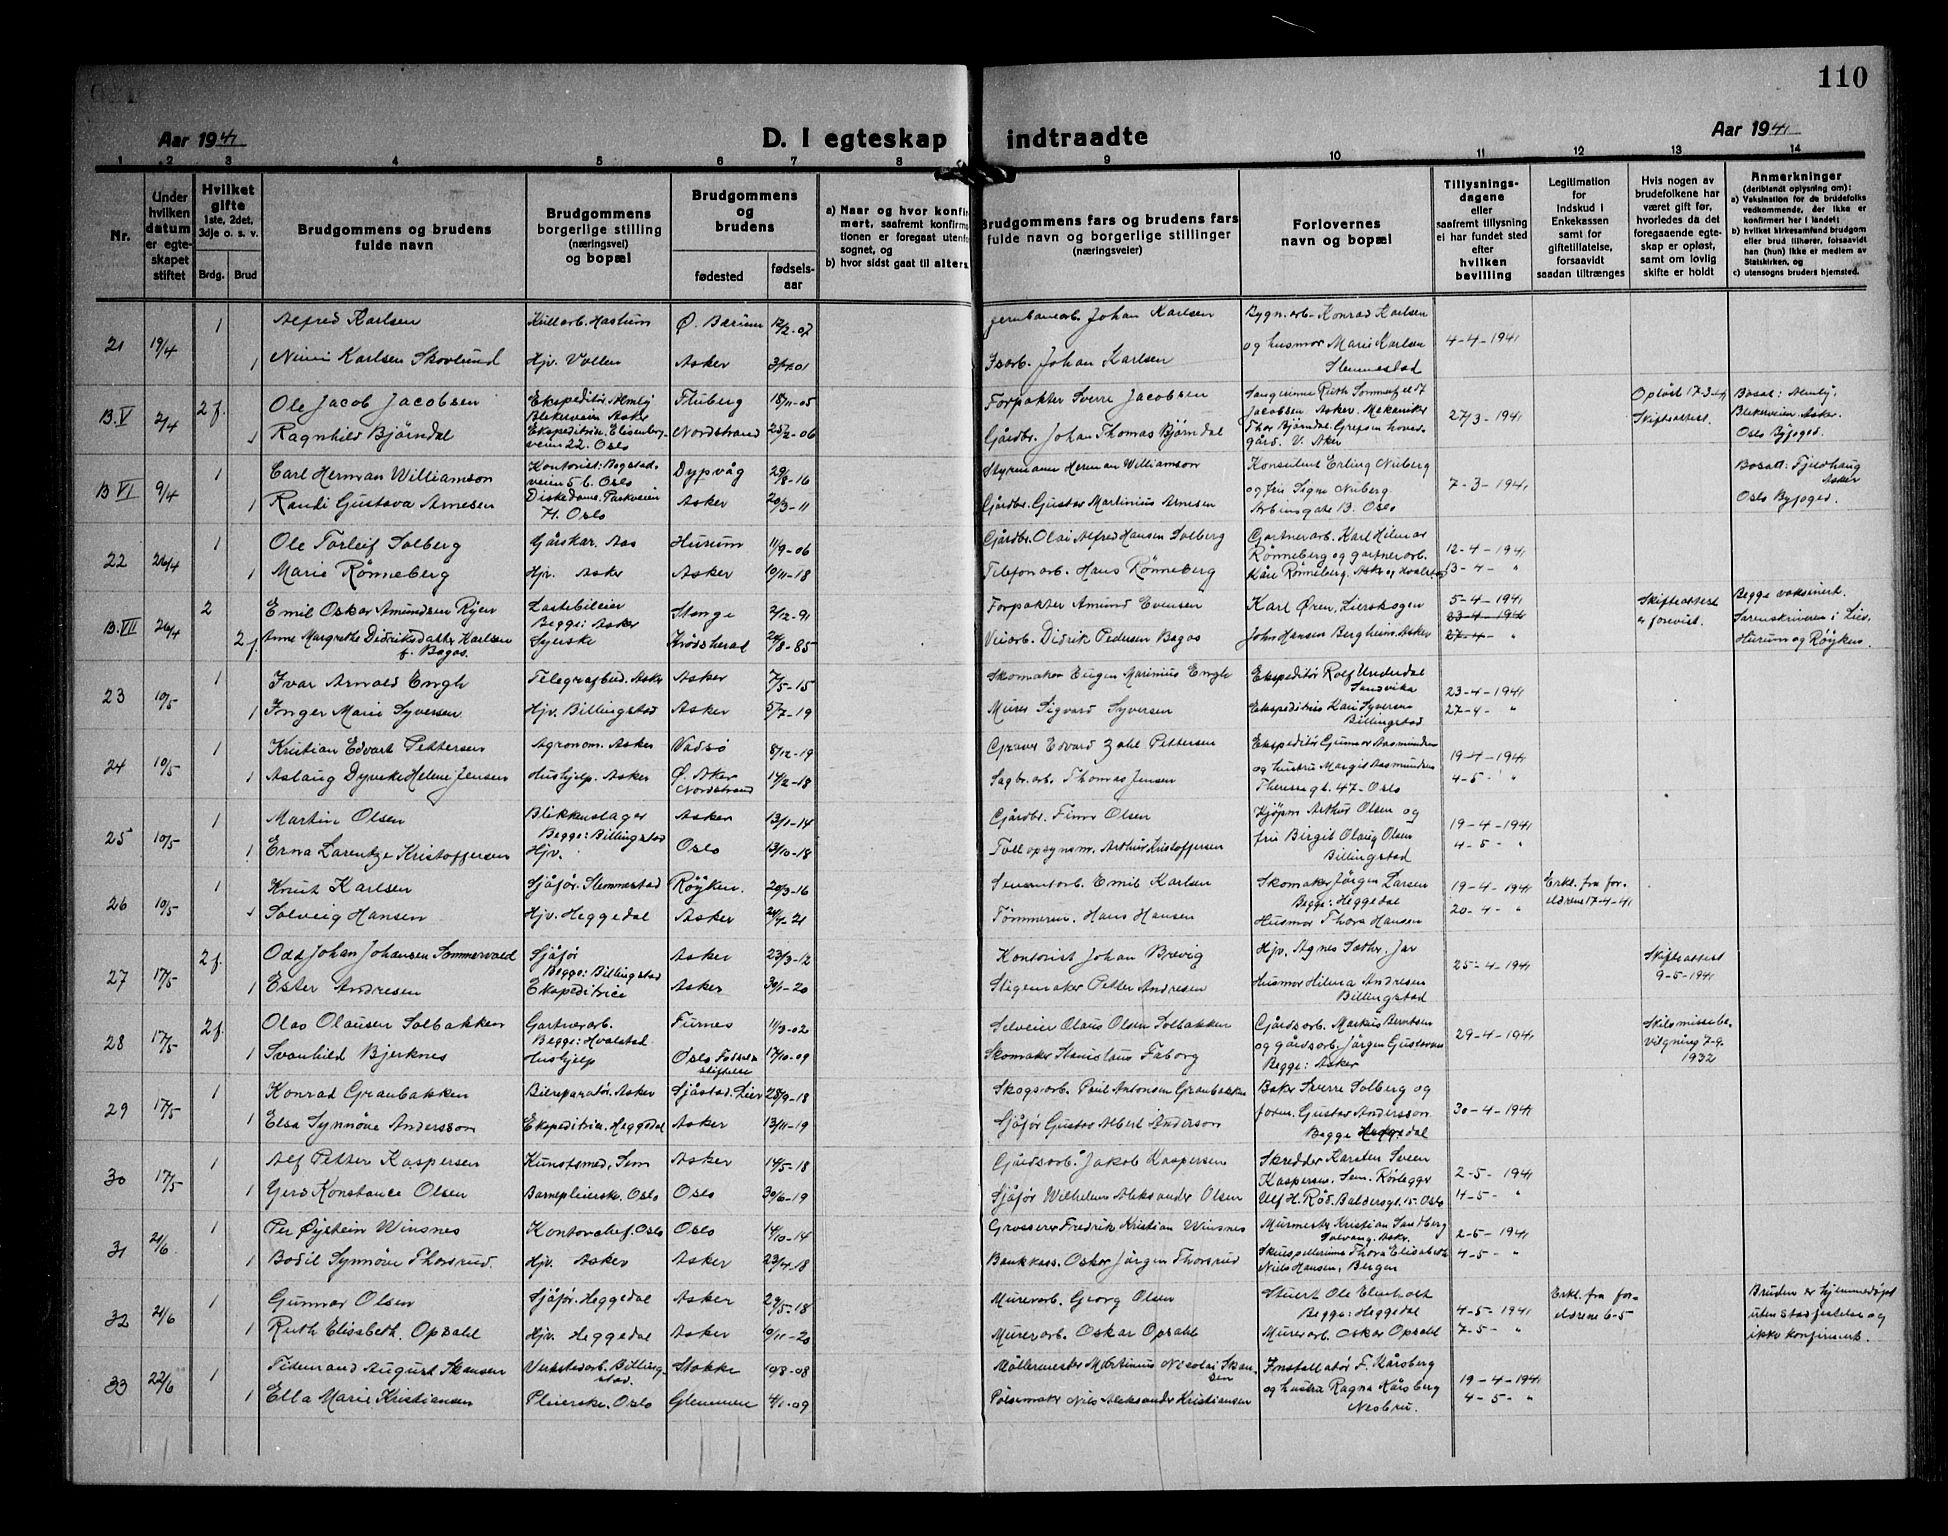 110
Aar 1941
D. I egteskap indtraadte
Aar 1941
1 2 3 4 5 6 7 8 9 10 11 12 13 14
Nr.
Under hvilken datum er egteskapet stiftet
Hvilket gifte 1ste, 2det, 3dje o. s. v.
Brdg. Brud
Brudgommens og brudens fulde navn
Brudgommens borgerlige stilling (næringsvei) og bopæl
Brudgommens og brudens
fødested
fødselsaar
a) Naar og hvor konfirmert, saafremt konfirmationen er foregaat utenfor sognet, og
b) hvor sidst gaat til alters.
Brudgommens fars og brudens fars fulde navn og borgerlige stillinger (næringsveier)
Forlovernes navn og bopæl
Tillysningsdagene eller saafremt tillysning ei har fundet sted efter hvilken bevilling
Legitimation for Indskud i Enkekassen samt for giftetillatelse, forsaavidt saadan tiltrænges
Hvis nogen av brudefolkene har været gift før, hvorledes da det foregaaende egteskap er opløst, samt om lovlig skifte er holdt
Anmerkninger
(deriblandt oplysning om):
a) Vaksination for de brudefolks vedkommende, der ikke er konfirmert her i landet;
b) hvilket kirkesamfund brudgom eller brud tilhører, forsaavidt han (hun) ikke er medlem av Statskirken, og
c) utensogns bruders hjemsted.
21 19/4 1 Alfred Karlsen Ø. Bærum 12/2-07 Johan Karlsen Bygn.arb. Konrad Karlsen
og husmor Marie Karlsen 4-4-1941
1 Karlsen Skovlund Hjv. Vollen Asker Isarb. Johan Karlsen Slemmestad
B.V 2/4 2 f. Ole Jacob Jacobsen Ekspeditør 18/11-05 Forpakter Sverre Jacobsen Jacobsen Asker. Mekaniker 27/3-1941 Opløst 17-3-41 Skifteattest. Bosatt: Blekerveien Asker. Oslo Byfoged.
1 Ragnhild Bjørndal Ekspeditrise Elisenbergveien 22. Oslo Nordstrand 25/2-06 Gårdbr. Johan Thomas Bjørndal Thor Bjørndal. Grefsen hovedgård. V. Aker
B VI 9/4 1 Carl Herman Williamson Kontorist: Bogstadveien 56. Oslo Dypvåg 29/8-16 Styrmann Herman Williamson Konsulent Erling Nuberg 7-3-1941 Bosatt: Fjeldhaug Asker
1 Randi Gustava Arnesen Diskedame. Parkveien 71. Oslo Asker 20/3-11 Gårdbr. Gustav Martinius Arnesen og fru Signe Nuberg Arbinsgate 13. Oslo Oslo Byfoged.
22 26/4 1 Ole Torleif Solberg Gårdskar. Aas Hurum 11/9-06 Gårdbr. Olai Alfred Hansen Solberg Gartnerarb. Karl Hilmar Rønneberg og gartnerarb. 12-4-1941
1 Marie Rønneberg Hjv. Asker Asker 10/11-18 Telefonarb. Hans Rønneberg Kåre Rønneberg. Asker og Hvalstad 13-4- "
B.VII 26/4 2 Emil Oskar Amundsen Ryen Lastebileier Begge: Asker Stange 2/12-91 Forpakter Amund Evensen Karl Øren, Lierskogen 5-4-1941 23-4-1941 Skifteattest er forevist. Begge vaksinert. Sorenskriveren i Lier, Hurum og Røyken.
2 f. Anne Margrethe Didriksdatter Karlsen f. Bagås. Syerske Krødsherad 24/8-85 Veiarb. Didrik Pedersen Bagås John Hansen Berghein. Asker 27-4- "
23 10/5 1 Ivar Arnold Engh Telegrafbud. Asker Asker 7/5-15 Skomaker Eugen Marinius Engh Ekspeditør Rolf Underdal Sandvika 23-4-1941
1 Inger Marie Syversen Hjv. Billingstad Asker 5/7-19 Murer Sigvard Syversen Ekspeditrise Kari Syversen Billingstad 27-4- "
24 10/5 1 Kristian Edvart Pettersen Agronom. Asker Vadsø 8/12-19 Graver Edvard Zahl Pettersen Ekspeditør Gunnar Aasmundsen 19-4-1941
1 Aslaug Dyveke Helene Jensen Hushjelp. Asker Ø. Aker Nordstrand 14/2-18 Sagbr.arb. Thomas Jensen og hustru Margit Aasmundsen Theresegt. 47 - Oslo 4-5- "
25 10/5 1 Martin Olsen Blikkenslager Begge: Billingstad Asker 13/1-14 Gårdbr. Finn Olsen Kjøpm. Arthur Olsen og 19-4-1941
1 Erna Larentze Kristoffersen Hjv. Oslo 13/10-18 Tollopsynsm. Arthur Kristoffersen fru Birgit Olaug Olsen Billingstad 4-5- "
26 10/5 1 Knut Karlsen Sjåfør. Slemmestad Røyken. 20/3-16 Sementarb. Emil Karlsen Skomaker Jørgen Larsen Begge: Heggedal 19-4-1941 Erkl. fra foreldrene 17-4-41
1 Solveig Hansen Hjv. Heggedal Asker Tømmerm. Hans Hansen Husmor Thora Hansen 20-4- "
27 17/5 2 f. Odd Johan Johansen Sommervold Sjåfør Begge: Billingstad Asker 23/3-12 Kontorist Johan Brevig Hjv. Agnes Sæthr. Jar 25-4-1941 Skifteattest 9-5-1941
1 Ester Andresen Ekspeditrice Asker 30/1-20 Stigemaker Petter Andresen Husmor Helena Andresen Billingstad
28 17/5 2 f. Olav Olausen Solbakken Gartnerarb. Begge: Hvalstad Furnes 11/3-02 Selveier Olaus Olsen Solbakken Gårdsarb. Markus Berntsen 29-4-1941 Skilsmissebevilgning 7-9. 1932
1 Svanhild Bjerknes Hushjelp Oslo Fødselsstiftelse 17/10-09 Skomaker Stanislaus Faborg og gårdsarb. Jørgen Gustavsen Begge: Asker
29 17/5 1 Konrad Granbakken Bilreparatør. Asker Sjåstad. Lier 28/9-18 Skogsarb. Paul Antonsen Granbakken Baker Sverre Solberg og
1 Elsa Synnøve Andersson Ekspeditrise. Heggedal Asker 13/11-19 Sjåfør Gustav Albert Anderson form. Gustav Andersson Begge Heggedal 30-4-1941
30 17/5 1 Alf Petter Kaspersen Kunstsmed, Sem Asker 14/5-18 Gårdsarb. Jakob Kaspersen Skredder Karsten Sveen Kaspersen, Sem. Rørlegger 2-5-1941
1 Gerd Konstance Olsen Barnepleierske. Oslo Oslo 30/6-19 Sjåfør Wilhelm Aleksander Olsen Ulf H. Rød. Baldersgt. 15. Oslo 4-5- "
31 21/6 1 Per Øystein Winsnes Kontorchef. Oslo Oslo 14/10-14 Grosserer Fredrik Kristian Winsnes Murmester Kristian Sandberg Solvang, Asker 2-5-1941
1 Bodil Synnøve Thorsrud. Hjv. Asker Asker 23/4-18 Bankkass. Oskar Jørgen Thorsrud Skuespillerinne Thora Elisabeth Niels Hansen, Bergen 4-5- "
32 21/6 1 Gunnar Olsen Sjåfør. Heggedal Asker 29/5-18 Murerarb. Georg Olsen Stuert Ole Elenholt Begge: Heggedal 4-5-1941 Erkl. fra foreldrene 6-5 Bruden er hjemmedøpt uten stadfestelse og ikke konfirmert.
1 Ruth Elisabeth. Opsahl Hjv. Heggedal Asker 10/11-20 Murerarb. Oskar Opsahl Murerarb. Oskar Opsahl 7-5- "
33 22/6 1 Tidemand August Skansen Verkstedarb. Billingstad. Stokke Møllermester Martinius Nicolai Skansen Installatør F. Kårsberg 19-4-1941
1 Ella Marie Kristiansen Pleierske. Oslo Glemmen 4/1-09 Pølsemaker Nils Aleksander Kristiansen og hustru Ragna Kårsberg Nesbru. 4-5- "